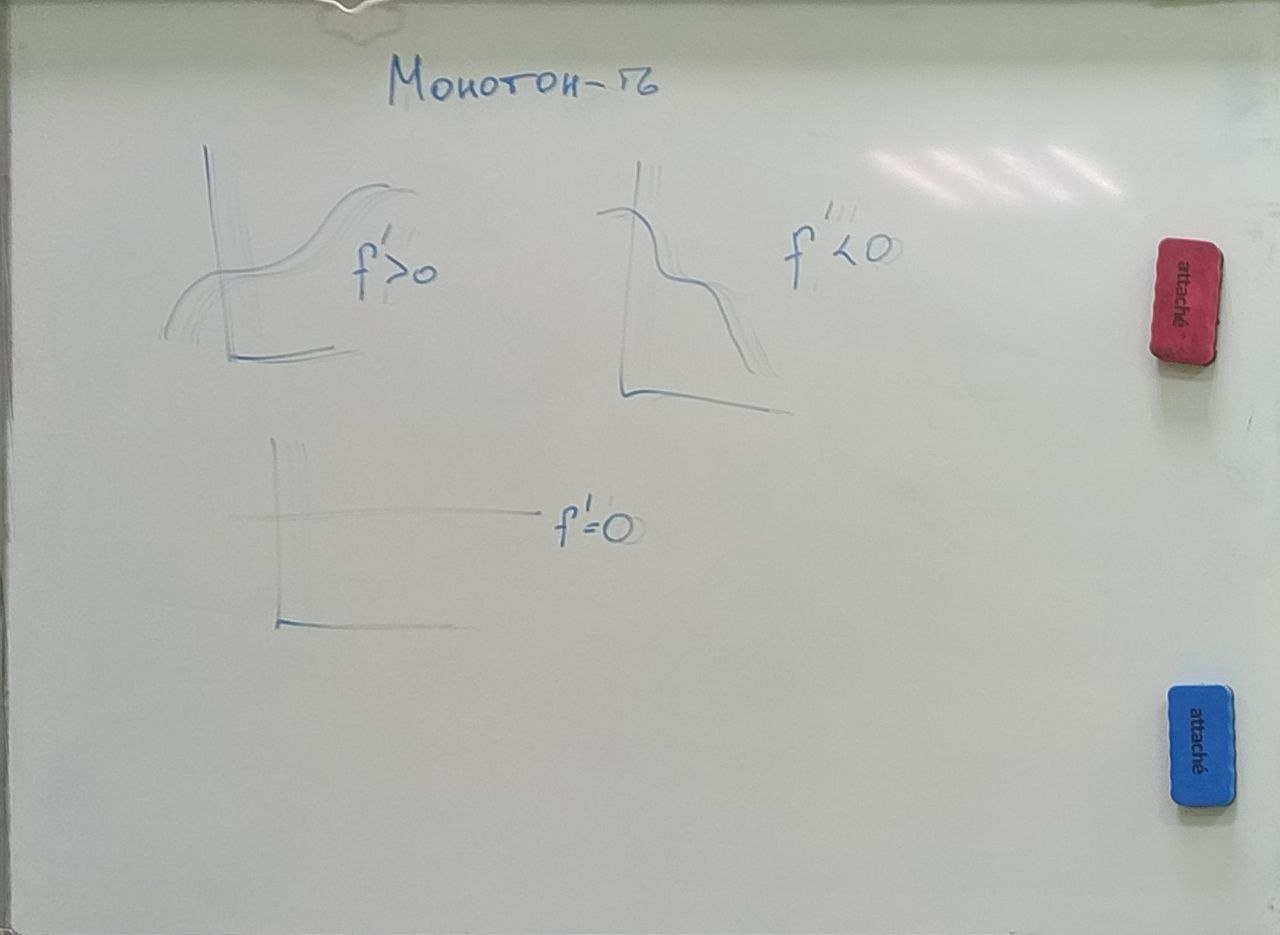 Монотон-ть
f'>0
f'<0
f'=0
attaché
attaché